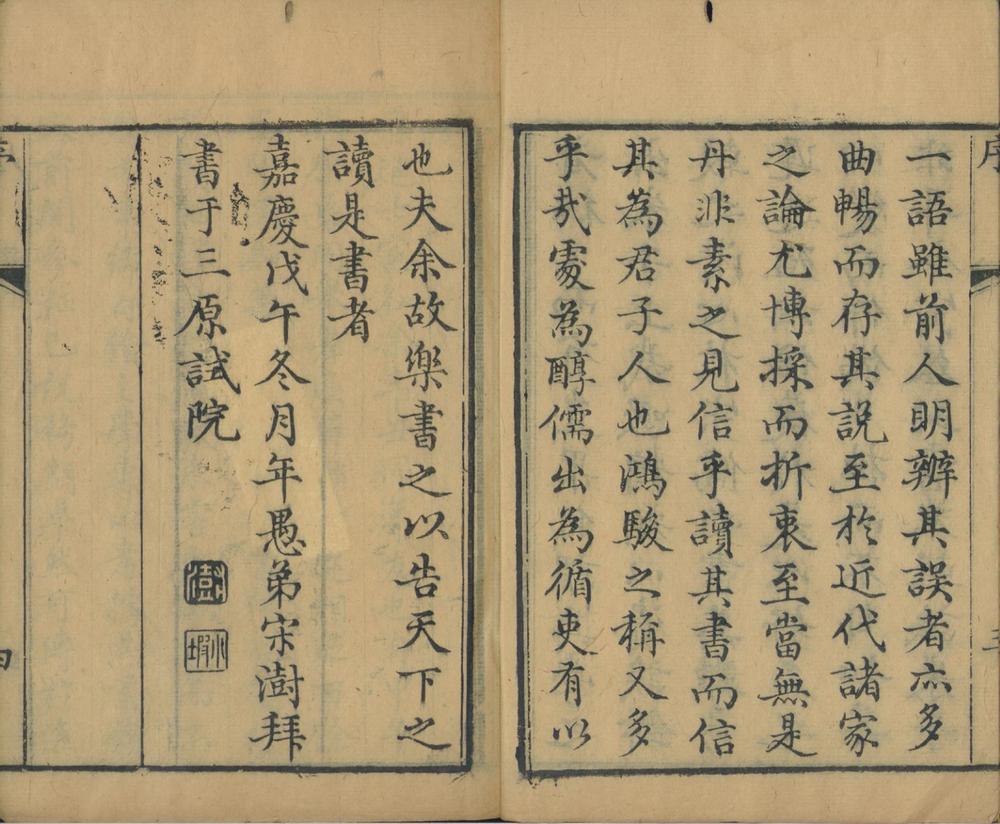 序
一語雖前人明辨其誤者亦多
曲暢而存其説至於近代諸家
之論尤博採而折衷至當無是
丹非素之見信乎讀其書而信
其為君子人也鴻駿之稱又多
乎哉處為醇儒出為循吏有以
也夫余故樂書之以告天下之
讀是書者
嘉慶戊午冬月年愚弟宋澍拜
書于三原試院
澍